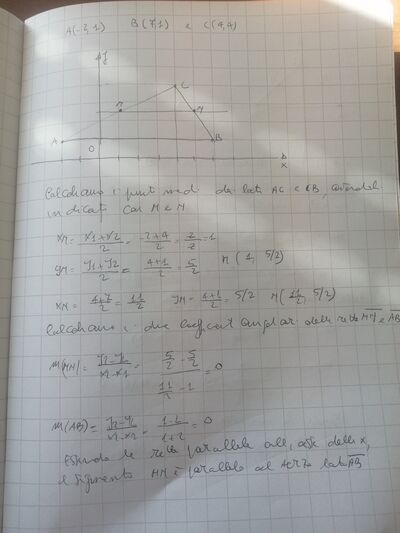 A(-2,1) B(7,1) e C(4,4)
y
C
M N
A B
O x
Calcoliamo i punti medi dei lati AC e CB,
indicati con M e N
xM = x1+x2/2 = -2+4/2 = 2/2 = 1
yM = y1+y2/2 = 4+1/2 = 5/2 M(1, 5/2)
xN = 4+7/2 = 11/2 yM = 4+1/2 = 5/2 N(11/2, 5/2)
Calcoliamo i due coefficienti angolari delle rette MN e AB
m(MN) = y2-y1/x2-x1 = 5/2 - 5/2 / 11/2 - 1 = 0
m(AB) = y2-y1/x2-x1 = 1-1/7+2 = 0
Essendo le rette parallele all' asse delle x,
il segmento MN è parallelo al terzo lato AB